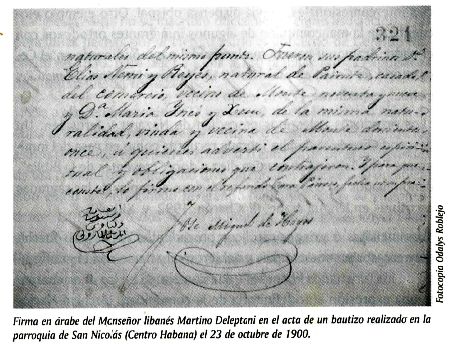 321
naturales del mismo punto. Fueron sus padrinos Dn.
Elías Nemi y Reyes, natural de casado
del comercio, vecino de Monte noventa y
y Da. María Inés y de la misma natu-
ralidad, viuda y vecina de Monte doscientos
once, á quienes advertí el parentesco espiri-
tual y obligaciones que contrajeron. Y para que
conste lo firmo en el
Miguel de Hoyos
Fotocopia Odalys Roblejo
Firma en árabe del Monseñor libanés Martino Deleptani en el acta de un bautizo realizado en la
parroquia de San Nicolás (Centro Habana) el 23 de octubre de 1900.